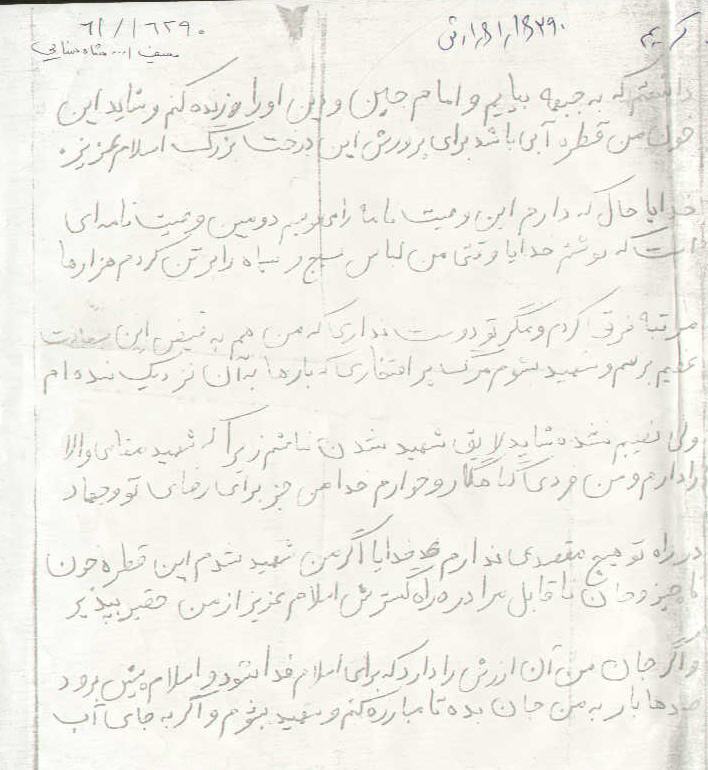 ۶۲/۱/۱۶۲۹۰
داشتم که به جبهه بیایم و امام حسین و دین او را زنده کنم و شاید این
خون من قطره آبی باشد برای پرورش این درخت بزرگ اسلام عزیز.
خدایا حال که دارم این وصیت نامه را می‌نویسم دومین وصیت نامه‌ای
است که نوشتم خدایا وقتی من لباس بسیج و سپاه را بر تن کردم هزارها
مرتبه فرق کردم و مگر تو دوست نداری که من هم به فیض این سعادت
عظیم برسم و شهید بشوم مرگ پر افتخاری که بارها به آن نزدیک شده ام
ولی نصیبم نشده شاید لایق شهید شدن نباشم زیرا که شهید مقامی والا
را دارم و من فردی گناهکار و خوارم خدا من جز برای رضای تو و جهاد
در راه تو هیچ مقصدی ندارم خدایا اگر من شهید شدم این قطره خون
ناچیز و جان ناقابل مرا در راه گسترش اسلام عزیز از من حقیر بپذیر
و اگر جان من آن ارزش را دارد که برای اسلام فدا شود و اسلام پیش برود
صدها بار به من جان بده تا مبارزه کنم و شهید بشوم و اگر به جای آب